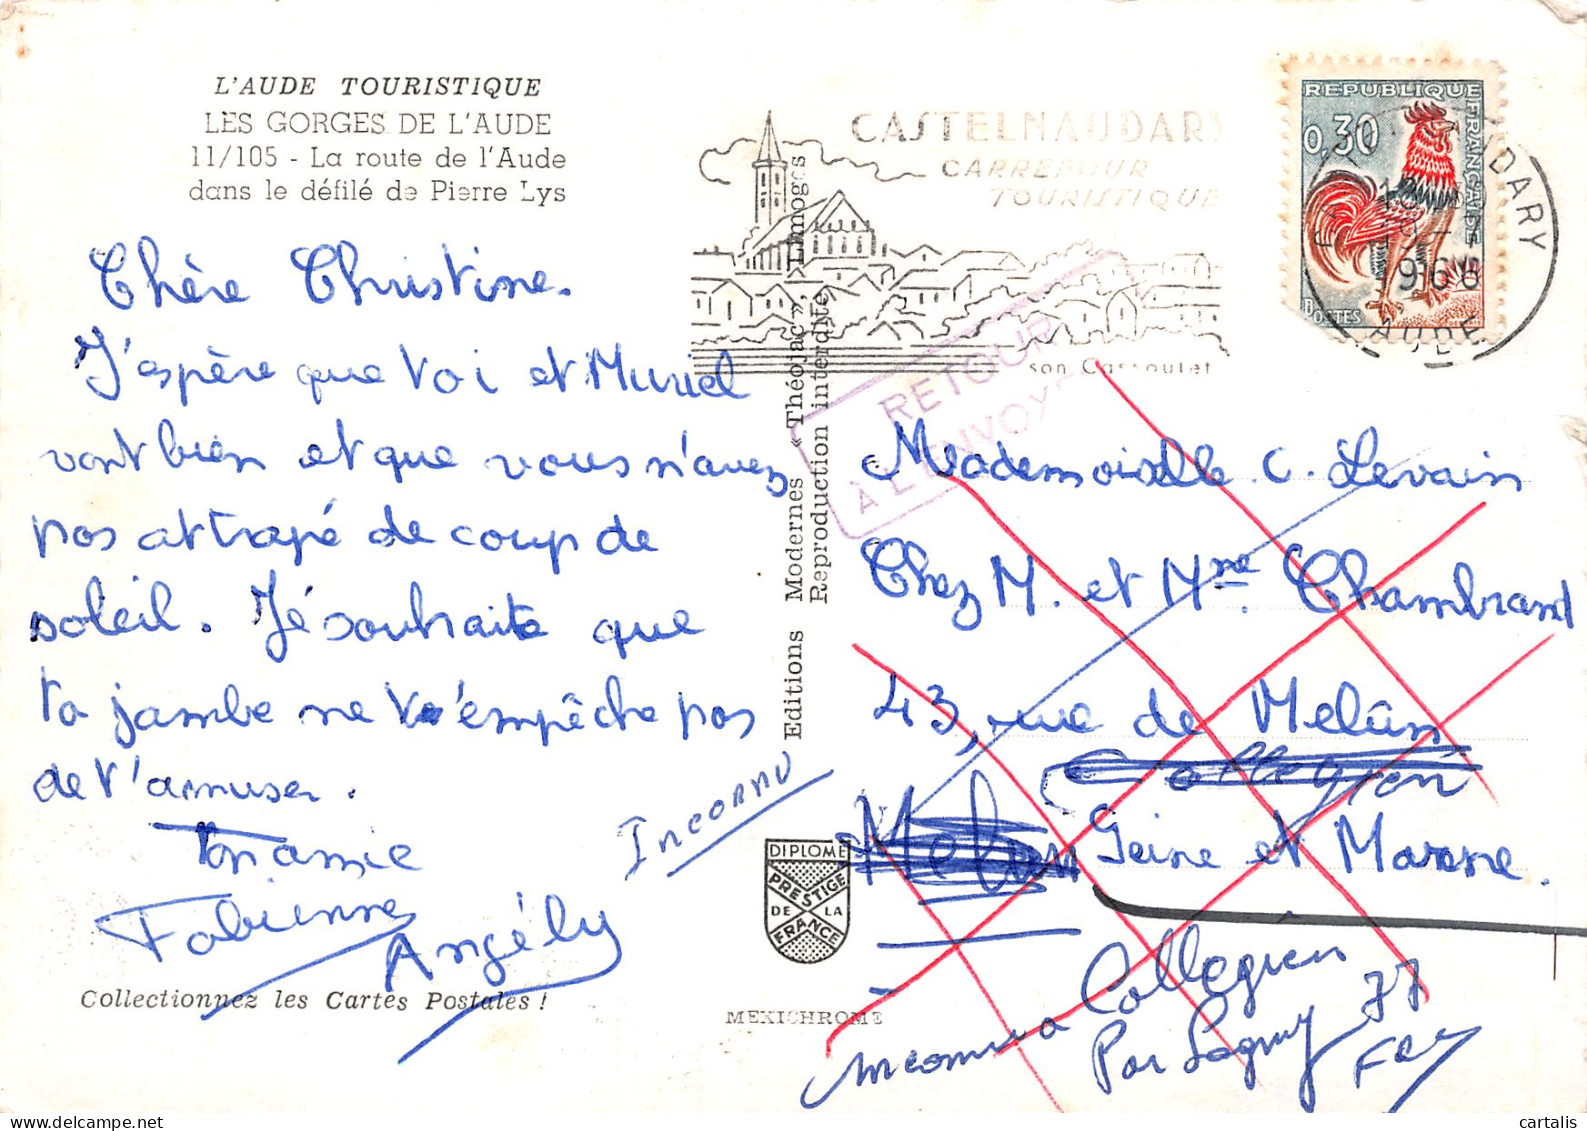 L'AUDE TOURISTIQUE
LES GORGES DE L'AUDE
11/105 - La route de l'Aude
dans le défilé de Pierre Lys
Chère Christine.
J'espère que toi et Muriel
vont bien et que vous n'avez
pas attrapé de coup de
soleil. Je souhaite que
ta jambe ne t'empêche pas
de t'amuser.
Fabienne
Angély
Collectionnez les Cartes Postales !
Editions Modernes « Théojac », Limoges
Reproduction interdite
INCONNU
DIPLOME
PRESTIGE
DE LA
FRANCE
MEXICHROME
CASTELNAUDARY
CARREFOUR
TOURISTIQUE
son Cassoulet
REPUBLIQUE
FRANÇAISE
0,30
POSTES
CASTELNAUDARY
1966
AUDE
RETOUR
À L'ENVOYEUR
Mademoiselle C. Levain
Chez M. et Mme. Chambrand
43, rue de Melun
Collegien
Melun Seine et Marne.
inconnu a Collegien
Par Lagny 77